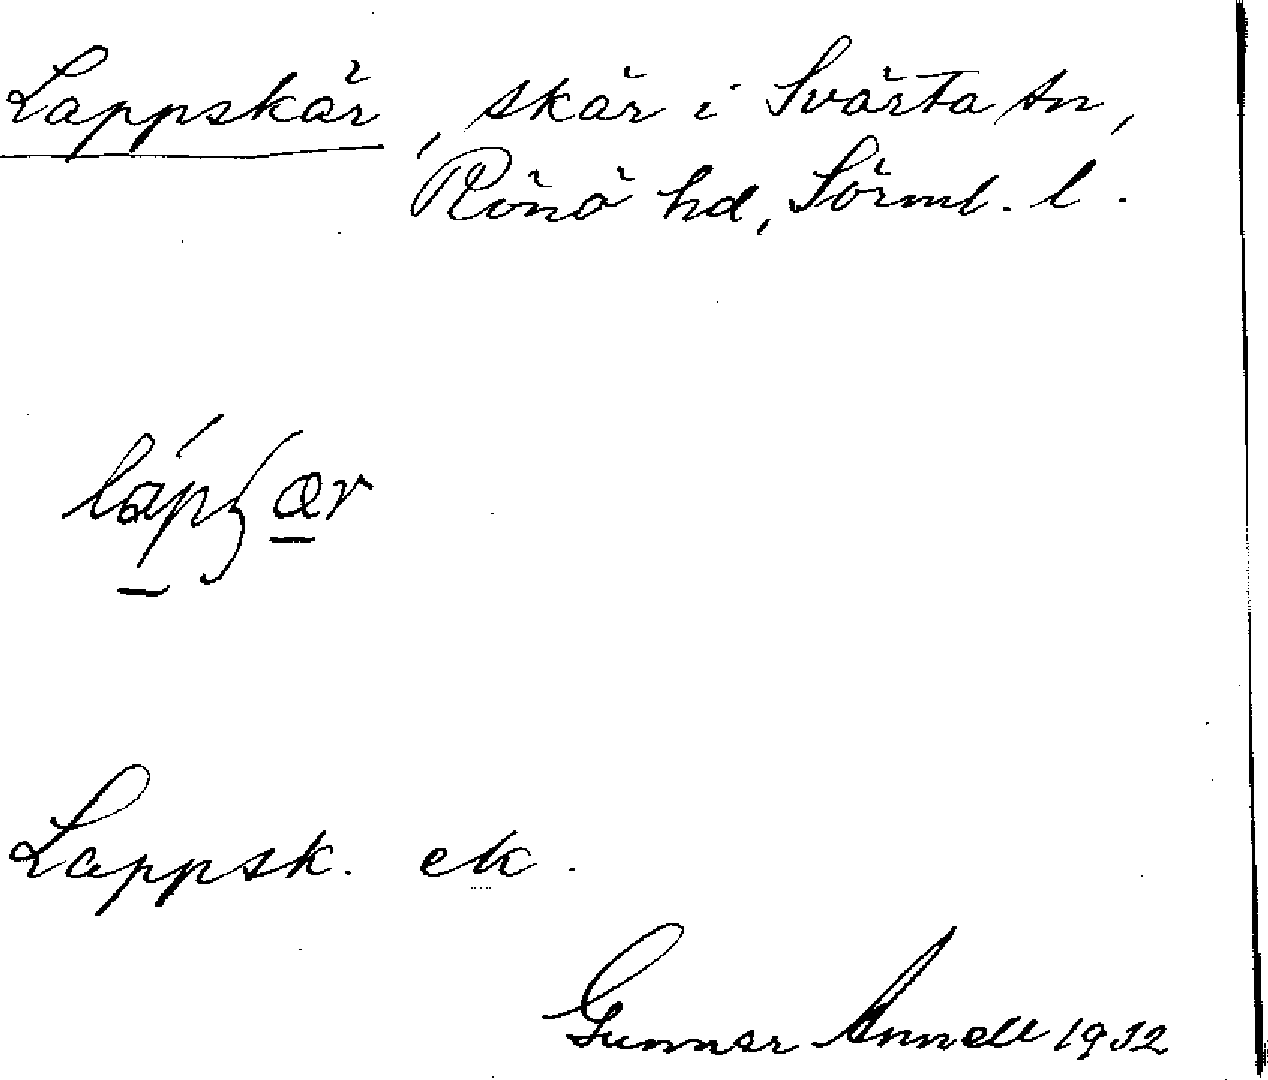 Lappskär, skär i Svärta sn,
Rönö hd, Sörml. l.
lápʃær
Lappsk. ek.
Gunnar Annell 1932